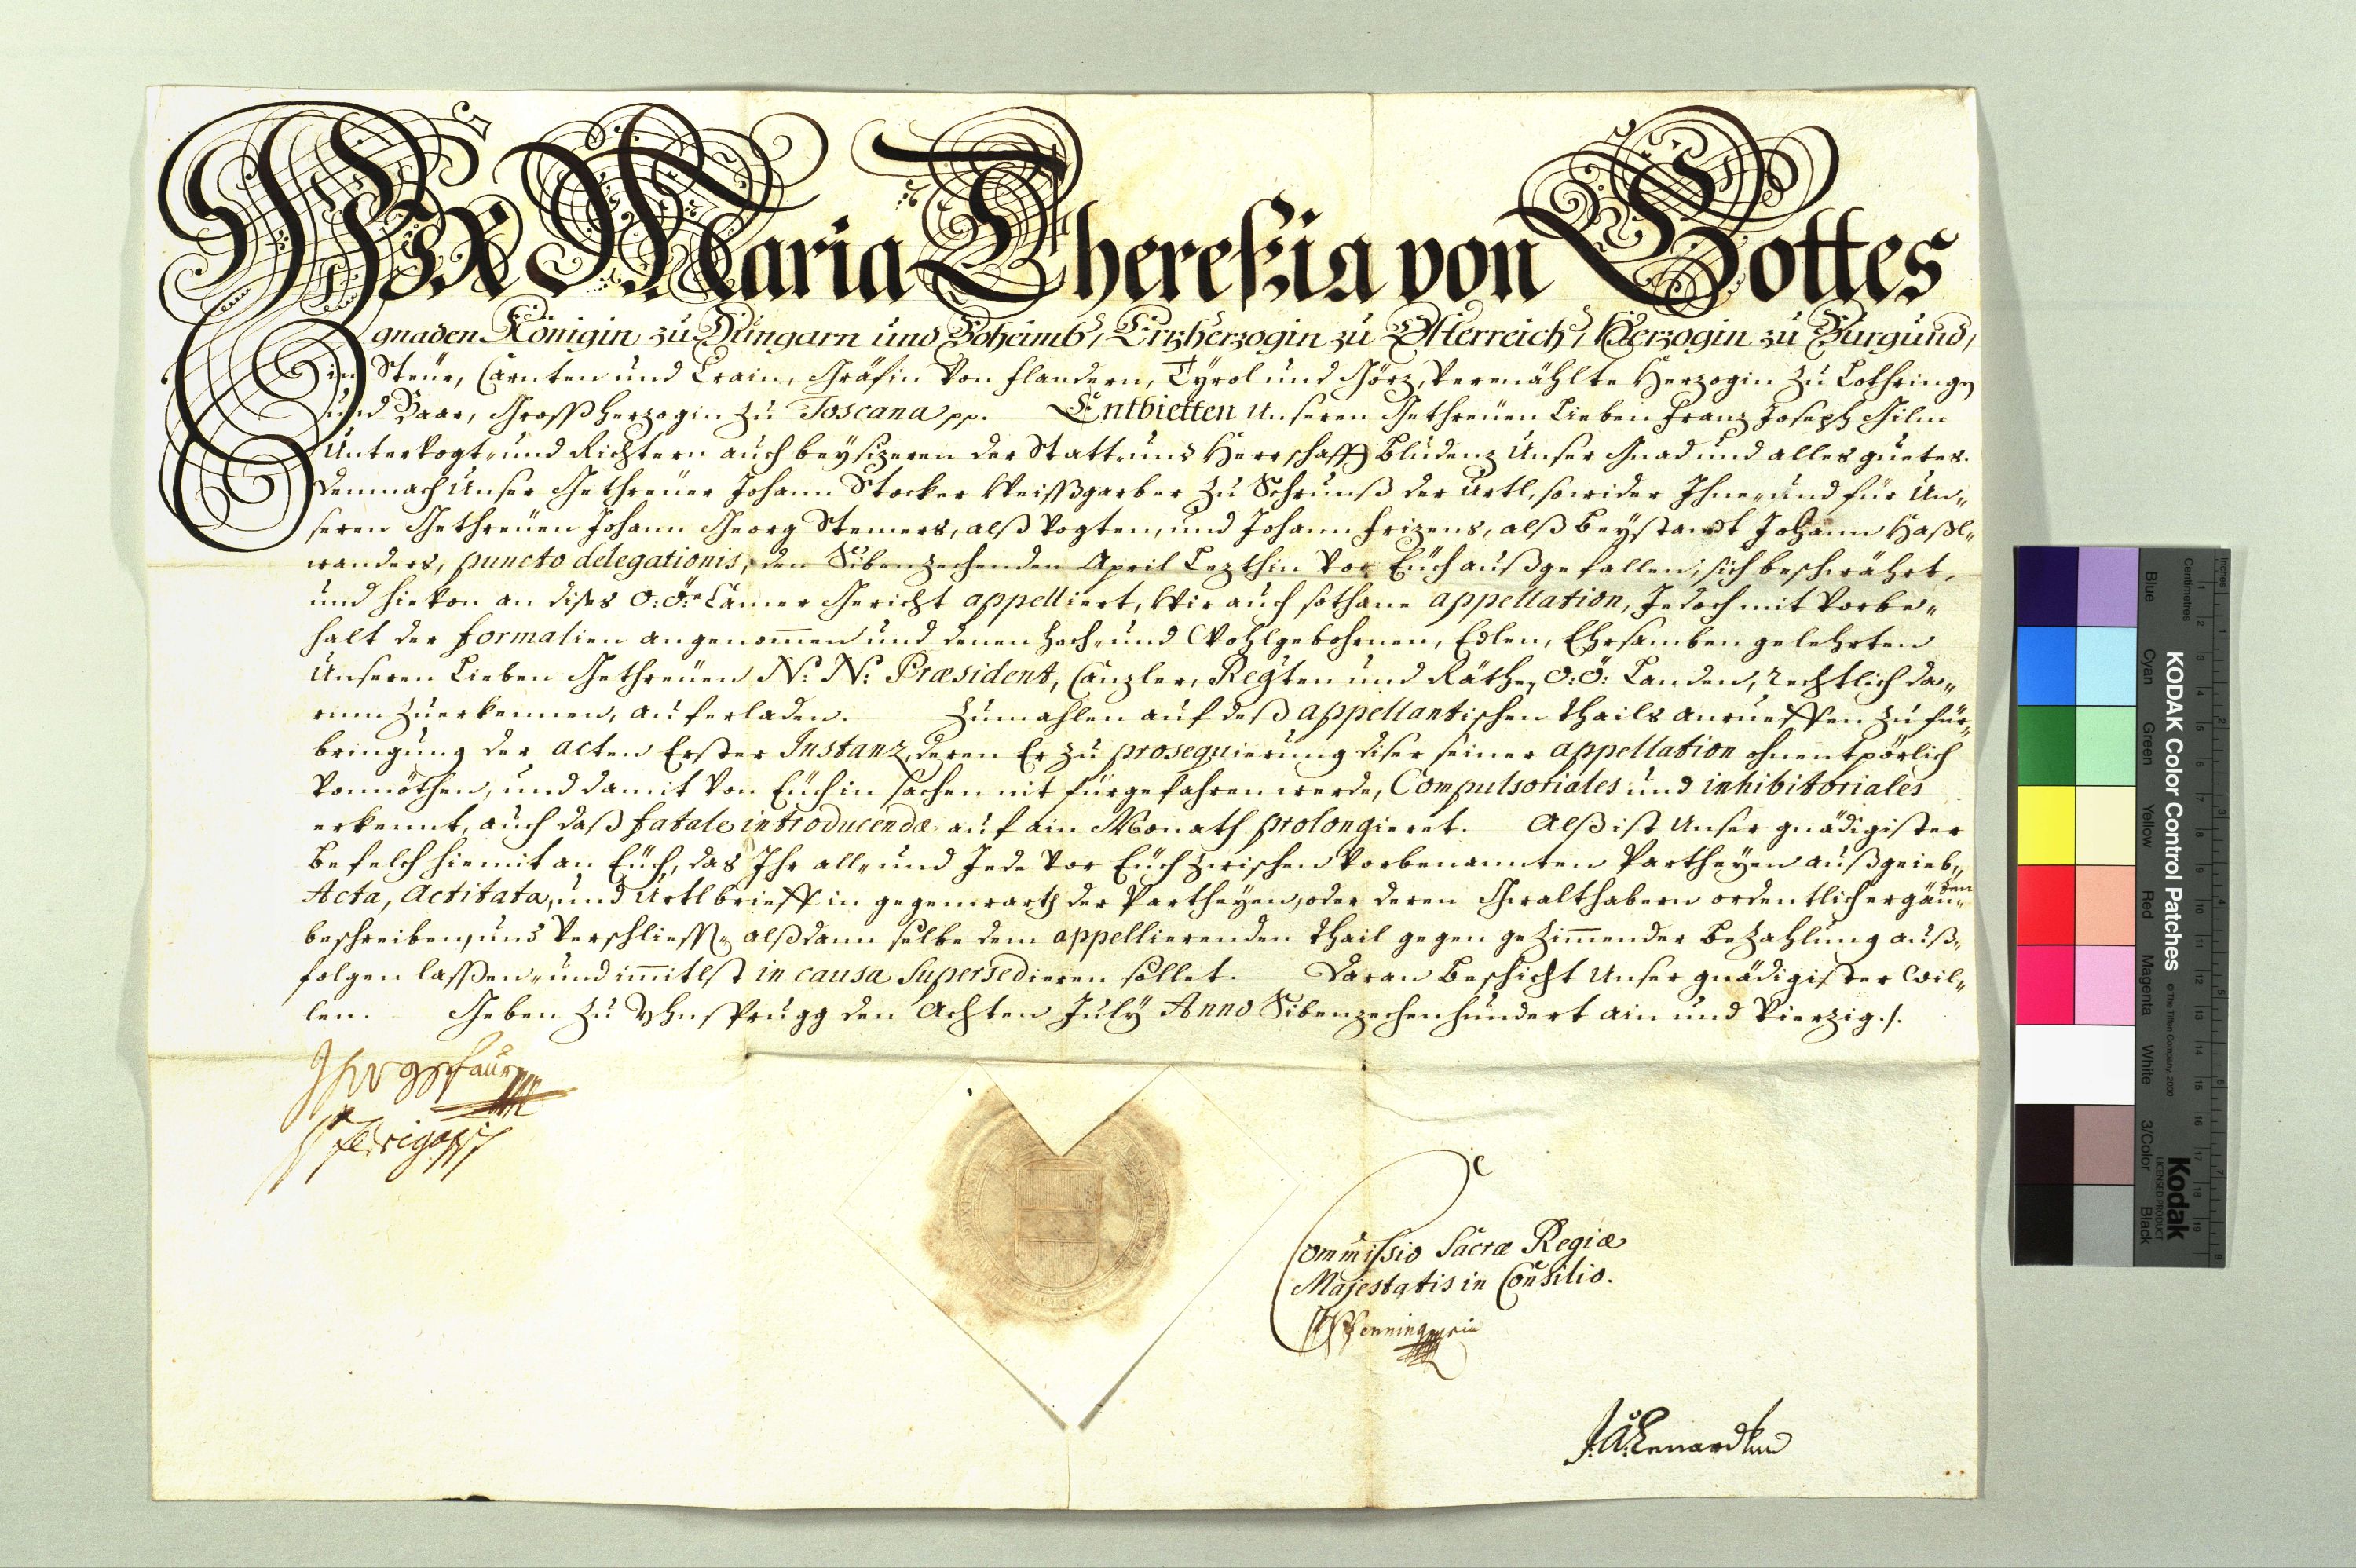 WIR Maria Theresia von Gottes
gnaden Königin zu Hungarn und Boheimb, Erzherzogin zu Össterreich, Herzogin zu Burgund,
in Steür, Cärnten und Crain, Gräfin von Flandern, Tÿrol und Görz, Vermählte Herzogin zu Lothringen
und Baar, Großherzogin zu Toscana pp. Entbietten Unseren Gethreüen Lieben Franz Joseph Gilm
Untervogt, und Richtern auch beysizeren der Statt und Herrschafft Bludenz Unser Gnad und alles guetes.
Demnach Unser Gethreüer Johann Stocker Weißgarber zu Schrunß der Urtl, so wider Ihne, und für Un„
seren Gethreüen Johann Georg Stemers, alß Vogten, und Johann Frizens, alß Beystandt Johann Haßl„
wanders, puncto delegationis, den Sibenzechenden April Lezthin vor Eüch außgefallen, sich beschwährt,
und hievon an dises O: Ö: Camer Gericht appelliert, Wir auch sothane appellation, Jedoch mit Vorbe„
halt der formalien angenommen und denen Hoch, und Wohlgebohrnen, Edlen, Ehrsamben gelehrten
Unseren Lieben Gethreüen N: N: Præsident, Canzler, Regten und Räthen O: Ö: Landen, rechtlich da„
rinn zuerkennen, auferladen. Zumahlen auf deß appellantischen thails anrueffen zu für„
bringung der acten Erster Instanz, deren Er zu prosequierung diser seiner appellation ohnentpörlich
vonnöthen, und damit von Eüch in sachen nit fürgefahren werde, Compulsoriales und inhibitoriales
erkennt, auch daß fatale introducendæ auf ain Monath prolongieret. Alß ist Unser gnädigister
Befelch hiemit an Eüch, das Ihr all, und Jede vor Eüch zwischen vorbenannten Partheyen außgeieb„
ten
Acta, Actitata, und Urtlbrieff in gegenwarth der Partheyen, oder deren Gwalthabern ordentlich ergän„
beschreiben, und verschliessen, alßdann selbe dem appellierenden thail gegen gezimmender Bezahlung auß„
folgen lassen, und immitlst in causa Supersedieren sollet. Daran Beschicht Unser gnädigister Wil„
len. Geben zu Yhnsprugg den Achten July Anno Sibenzechenhundert ain und Vierzig./.
Commissio Sacræ Regiæ
Majestatis in Consilio.
KODAK Color Control Patches
© The Tiffen Company, 2000
Kodak
LICENSED PRODUCT
Inches
Centimetres
Blue
Cyan
Green
Yellow
Red
Magenta
White
3/Color
Black